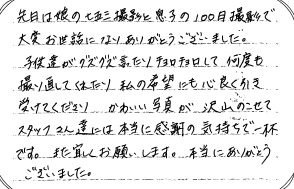 先日は娘の七五三撮影と息子の100日撮影で
大変お世話になりありがとうございました。
子供達がグズグズ言ったりチョロチョロして何度も
撮り直してくれたり私の希望にも心良く引き
受けてくださり かわいい写真が沢山のこせて
スタッフさん達には本当に感謝の気持ちで一杯
です。また宜しくお願いします。本当にありがとう
ございました。